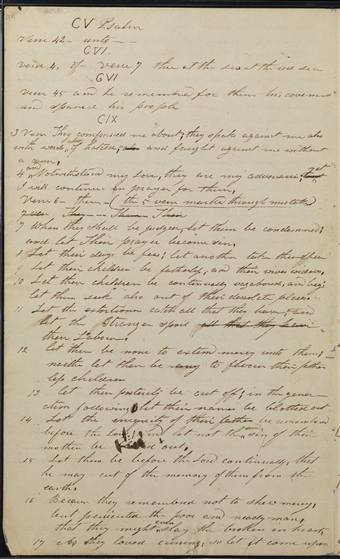 CV Psalm
Verse 42 - unto -
CVI
verse 7, of verse 7 the at the sea at the red sea
CVI
verse 45 and he remembered for them his covenant
and spared his people
CIX
3 Verse They compassed me about; they spake against me also
with words, of hatred; and faught against me without
a cause,
4 and Notwithstanding my love, they are my adversaries;
I will continue in prayer for them,
Verse 6 - them - (the 5 verse marke through mistake)
7 When they shall be judged, let them be condemned;
and let their prayer become sin,
8 Let their days be few; let another take their office
9 Let their children be fatherless, and their wives widows,
10 Let their children be continually vagabonds, and beg;
let them seek also out of their desolate places.
11 Let the extortioner catch all that they have; and
let the Stranger spoil all that they have
their Labour.
12 Let there be none to extend mercy unto them;
neither let there be any to favour their father
less children
13 Let their posterity be cut off; in the gener-
ation following let their names be blotted out
14 Let the iniquity of their father be remembered
before the Lord; and let not the sin of their
mother be out;
15 Let them be before the Lord continually, that
he may cut of the memory of them from the
earth.
16 Because they remembered not to shew mercy,
but persecuted the poor and needy man,
that they might even slay the broken in heart,
17 As they loved cursing, so let it come upon